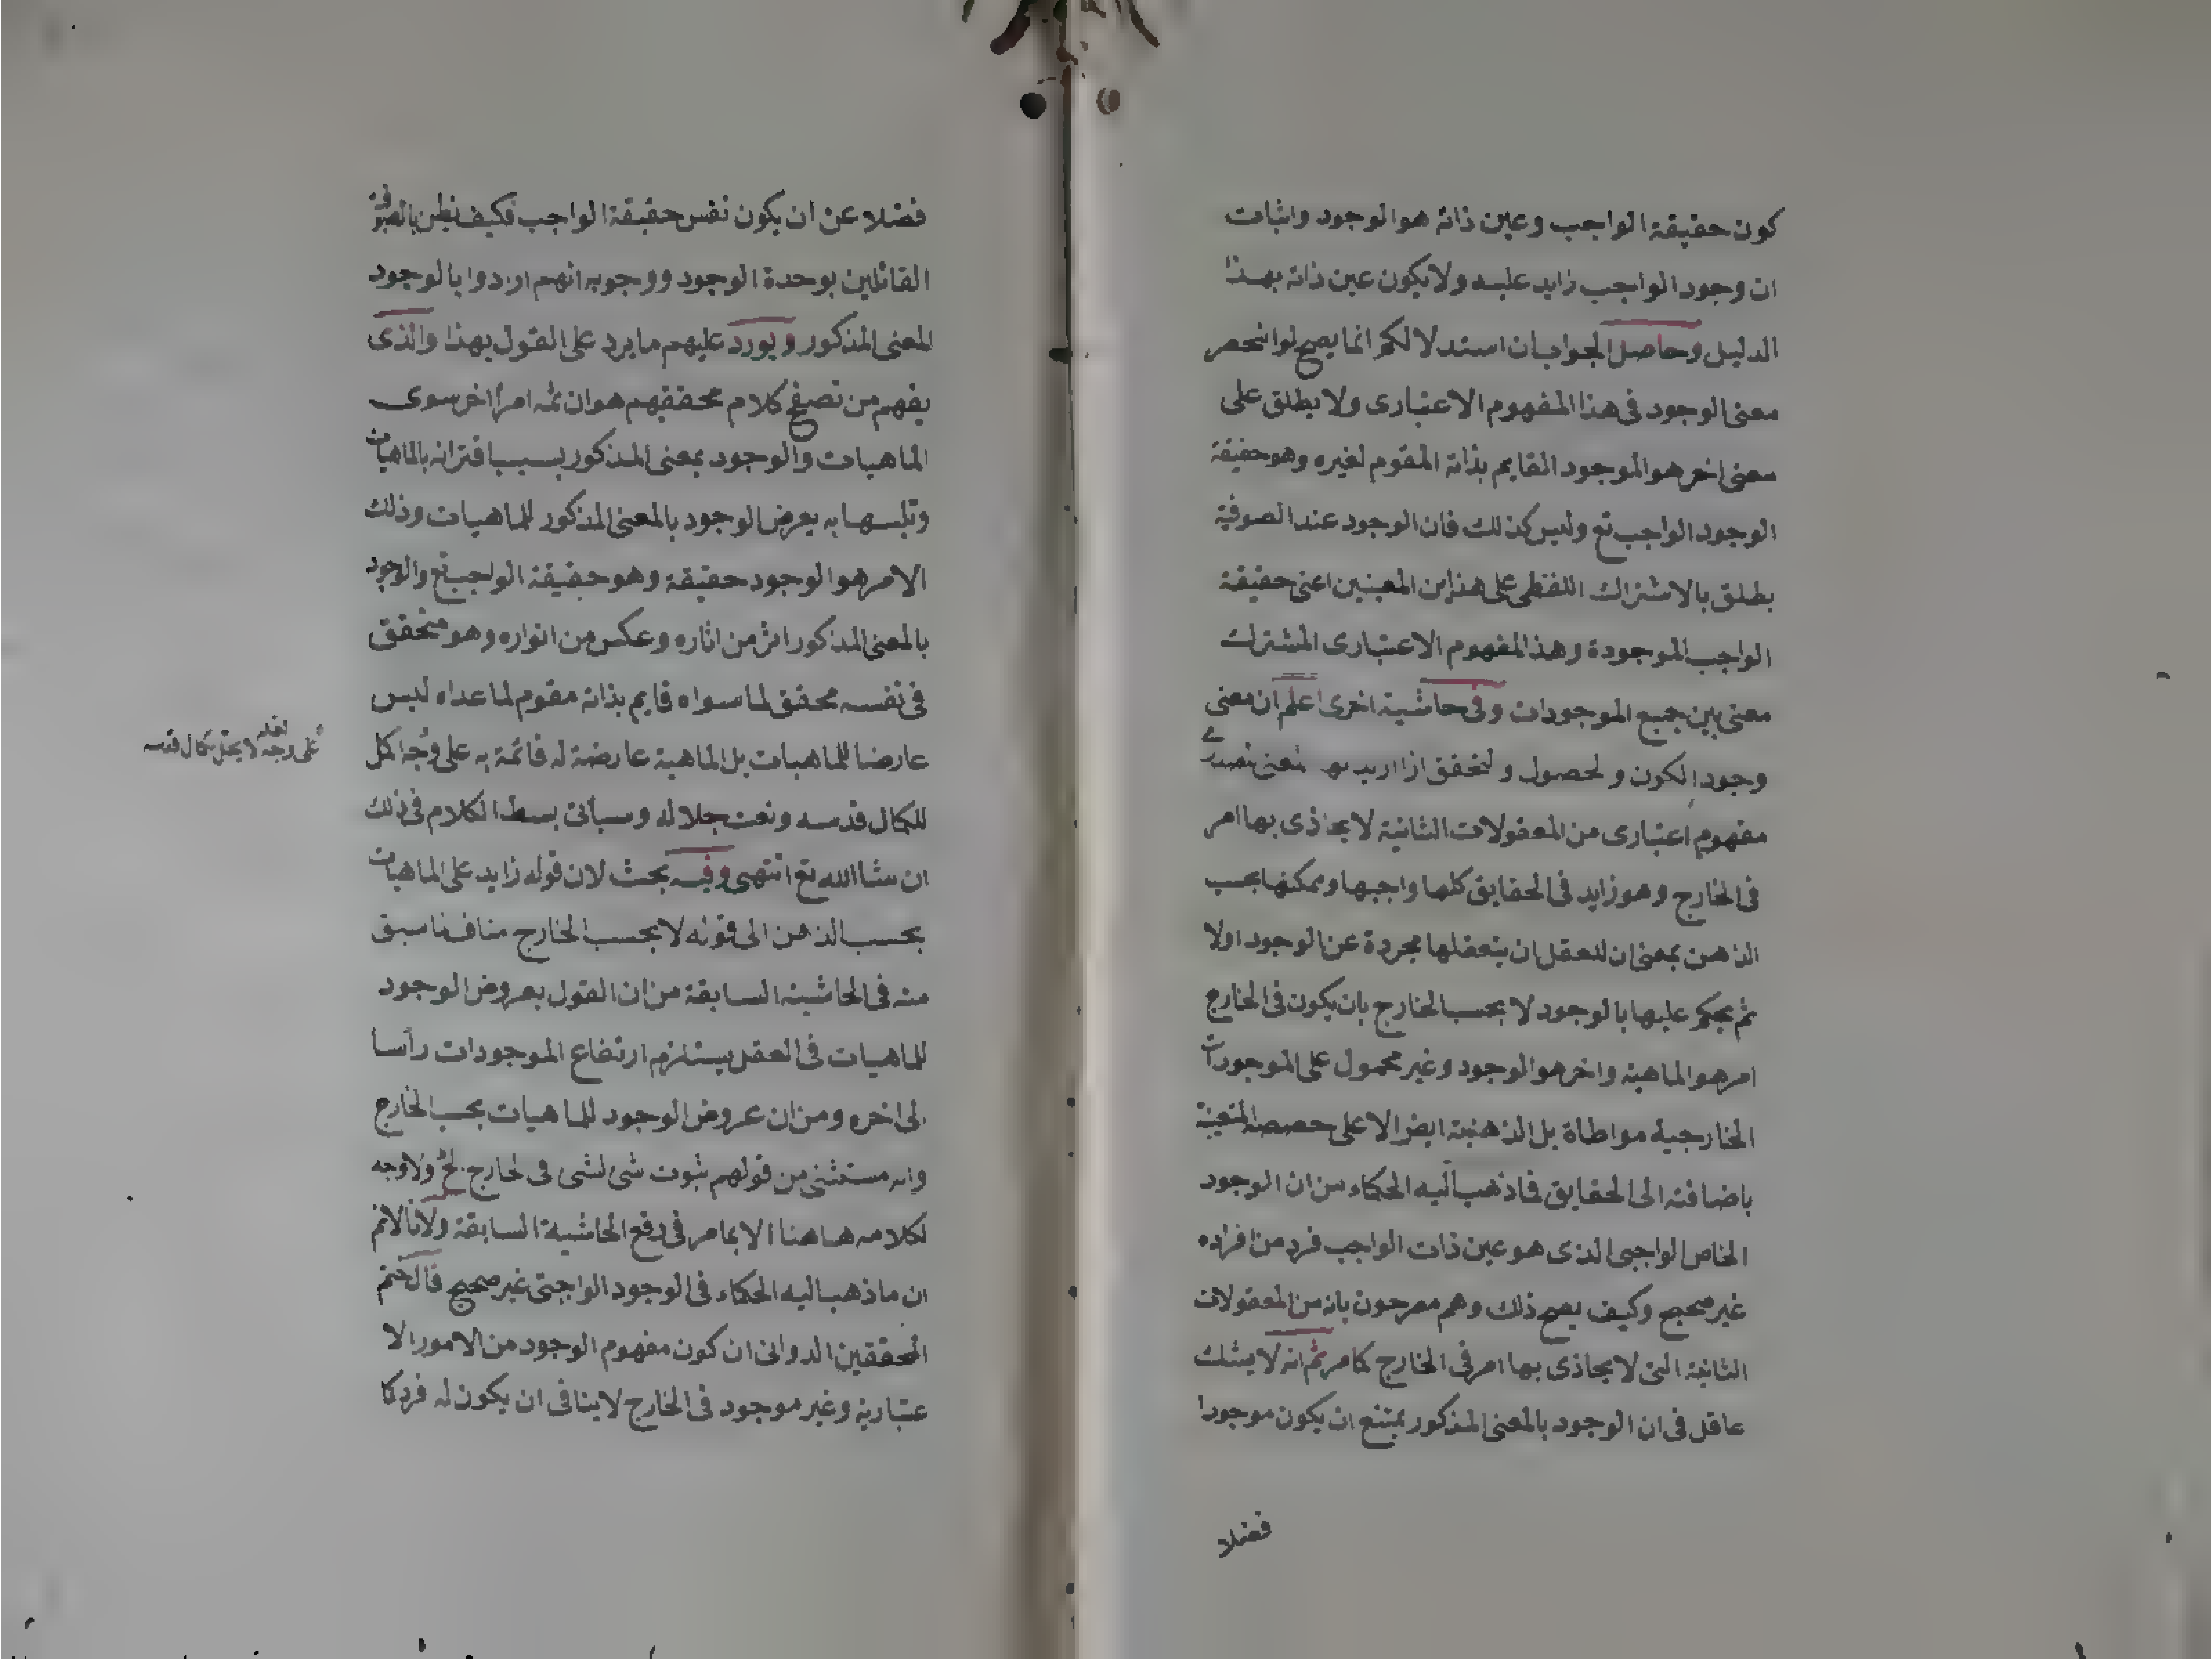 كون حقيقة الواجب وعين ذاته هو الوجود واثبات
ان وجود الواجب زايد عليه ولا يكون عين ذاته بهذا
الدليل وحاصل الجواب ان استدلالكم انما يصح لو انحصر
معنى الوجود فى هذا المفهوم الاعتبارى ولا يطلق على
معنى اخر هو الموجود القايم بذاته المقوم لغيره وهو حقيقة
الوجود الواجب تع وليس كذلك فان الوجود عند الصوفية
يطلق بالاشتراك اللفظى على هذاين المعنيين اعنى حقيقة
الواجب الموجودة وهذا المفهوم الاعتبارى المشترك
معنى بين جميع الموجودات وفى حاشية اخرى اعلم ان معنى
وجود الكون و لحصول و لتحقق اذا اريد به معنى
مفهوم اعتبارى من المعقولات الثانية لا يحاذى بها امر
فى الخارج وهو زايد فى الحقايق كلها واجبها وممكنها بحسب
الذهن بمعنى ان للعقل ان يتعقلها مجردة عن الوجود اولا
ثم يحكم عليها بالوجود لا بحسب الخارج بان يكون فى الخارج
امر هو الماهية واخر هو الوجود وغير محمول على الموجودات
الخارجية مواطاة بل الذهنية ايضا الا على حصصه المتعينة
باضافته الى الحقايق فما ذهب اليه الحكماء من ان الوجود
الخاص الواجبى الذى هو عين ذات الواجب فرد من افراده
غير صحيح وكيف يصح ذلك وهم مصرحون بانه من المعقولات
الثانية التى لا يحاذى بها امر فى الخارج كما مر ثم انه لا يشك
عاقل فى ان الوجود بالمعنى المذكور يمتنع ان يكون موجودا
فضلا
فضلا عن ان يكون نفس حقيقة الواجب فكيف يظن بالصوفية
القائلين بوحدة الوجود ووجوبه انهم ارادوا بالوجود
المعنى المذكور ويورد عليهم ما يرد على القول بهذا والذى
يفهم من تصفح كلام محققيهم هو ان ثمه امرا اخر سوى
الماهيات والوجود بمعنى المذكور بسبب اقترانه بالماهيات
وتلبسها به يعرض الوجود بالمعنى المذكور للماهيات وذلك
الامر هو الوجود حقيقة وهو حقيقة الواجب تع والوجود
بالمعنى المذكور اثر من اثاره وعكس من انواره وهو متحقق
فى نفسه محقق لما سواه قايم بذاته مقوم لما عداه ليس
عارضا للماهيات بل الماهية عارضة له قائمة به على وجه
على وجه لا يخل بكمال قدسه
للكمال قدسه ونعت جلاله وسيأتى بسط الكلام فى ذلك
ان شا الله تع انتهى وفيه بحث لان قوله زايد على الماهيات
بحسب الذهن الى قوله لا بحسب الخارج مناف لما سبق
منه فى الحاشية السابقة من ان القول بعروض الوجود
للماهيات فى العقل يستلزم ارتفاع الموجودات رأسا
الى اخره ومن ان عروض الوجود للماهيات بحسب الخارج
وانه مستثنى من قولهم ثبوت شى لشى فى لخارج الخ ولا وجه
لكلامه هاهنا الا بما مر فى دفع الحاشية السابقة ولانا لانم
ان ما ذهب اليه الحكماء فى الوجود الواجبى غير صحيح قال ختم
المحققين الدوانى ان كون مفهوم الوجود من الامور الا
عتبارية وغير موجود فى الخارج لا ينافى ان يكون له فرد كا